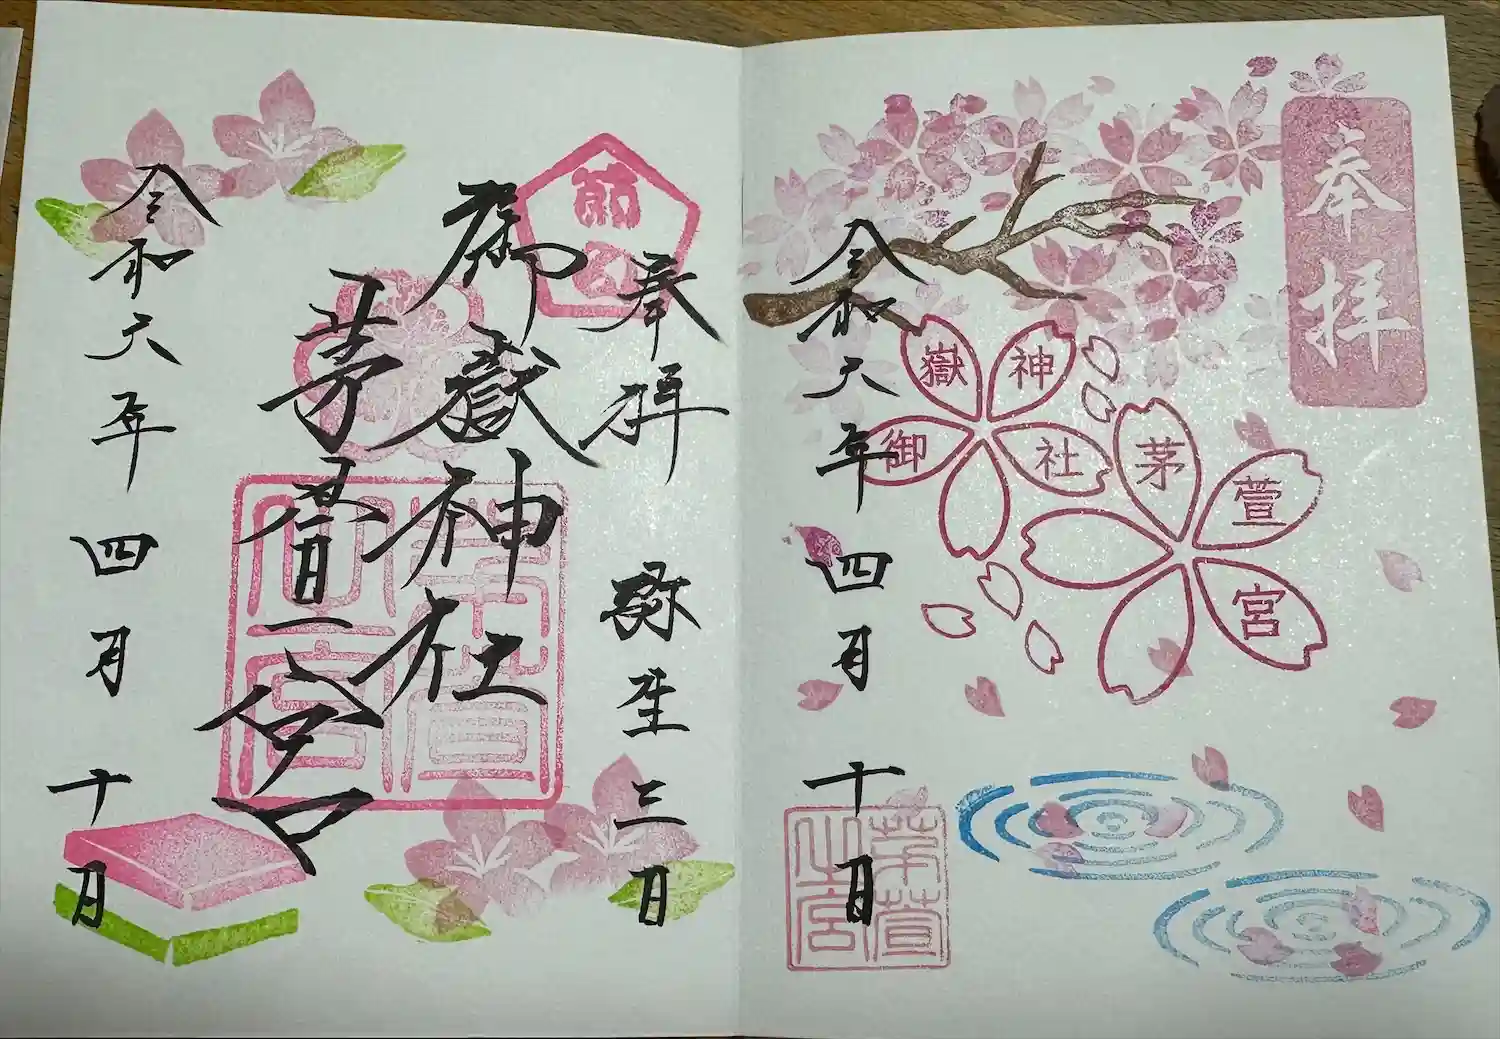 奉拝
御嶽神社
茅萱宮
令和六年四月十日
茅萱之宮
奉拝 弥生三日
御嶽神社
茅萱宮
茅萱之宮
令和六年四月十日